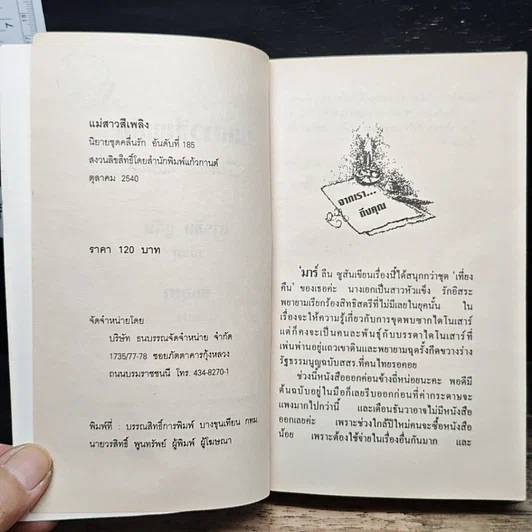 แม่สาวสีเพลิง
นิยายชุดคลื่นรัก อันดับที่ 185
สงวนลิขสิทธิ์โดยสำนักพิมพ์แก้วกานต์
ตุลาคม 2540
ราคา 120 บาท
จัดจำหน่ายโดย
บริษัท ธนบรรณจัดจำหน่าย จำกัด
1735/77-78 ซอยภัตตาคารกุ้งหลวง
ถนนบรมราชชนนี โทร. 434-8270-1
พิมพ์ที่ : บรรณสิทธิ์การพิมพ์ บางขุนเทียน กทม.
นายวรสิทธิ์ พูนทรัพย์ ผู้พิมพ์ ผู้โฆษณา
จากเรา...
ถึงคุณ
'มาร์ ลีน ซูสันเขียนเรื่องนี้ได้สนุกกว่าชุด "เที่ยง
คืน" ของเธอค่ะ นางเอกเป็นสาวหัวแข็ง รักอิสระ
พยายามเรียกร้องสิทธิสตรีที่ไม่มีเลยในยุคนั้น ใน
เรื่องจะให้ความรู้เกี่ยวกับการขุดพบซากไดโนเสาร์
แต่ก็คงจะเป็นคนละพันธุ์กับบรรดาไดโนเสาร์ที่
เพ่นพ่านอยู่แถวเขาดินและพยายามฉุดรั้งกีดขวางร่าง
รัฐธรรมนูญฉบับสสร.ที่คนไทยรอคอย
ช่วงนี้หนังสือออกค่อนข้างถี่หน่อยนะคะ พอดีมี
ต้นฉบับอยู่ในมือก็เลยรีบออกก่อนที่ค่ากระดาษจะ
แพงมากไปกว่านี้ และเดือนธันวาอาจไม่มีหนังสือ
ออกเลยค่ะ เพราะช่วงใกล้ปีใหม่คนจะซื้อหนังสือ
น้อย เพราะต้องใช้จ่ายในเรื่องอื่นกันมาก และ